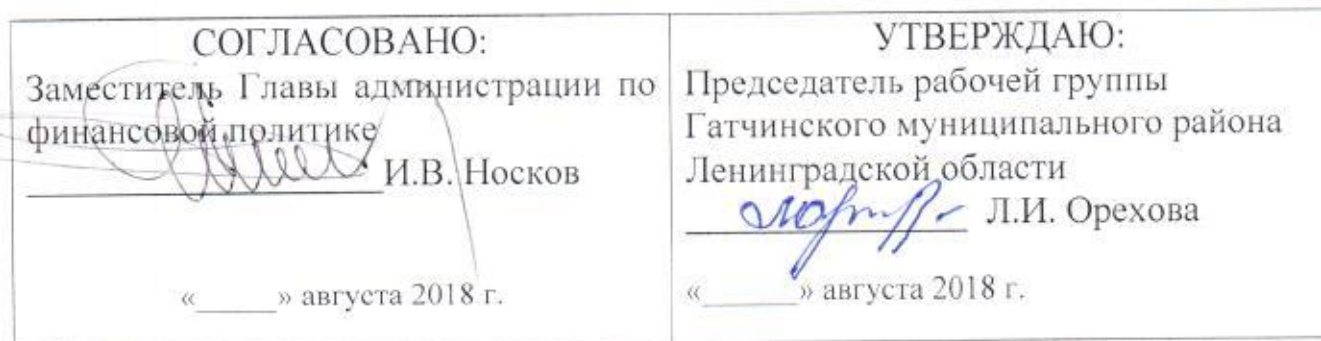 СОГЛАСОВАНО:
Заместитель Главы администрации по
финансовой политике
И.В. Носков
«_____» августа 2018 г.
УТВЕРЖДАЮ:
Председатель рабочей группы
Гатчинского муниципального района
Ленинградской области
Л.И. Орехова
«_____» августа 2018 г.